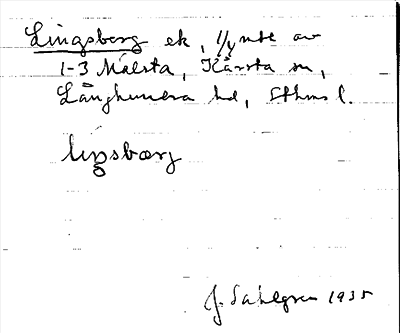 Lingsberg ek, 1/4 mbt av
1-3 Målsta, Kårsta sn,
Långhundra hd, Sthms l.
lıŋsbærj
J. Sahlgren 1935